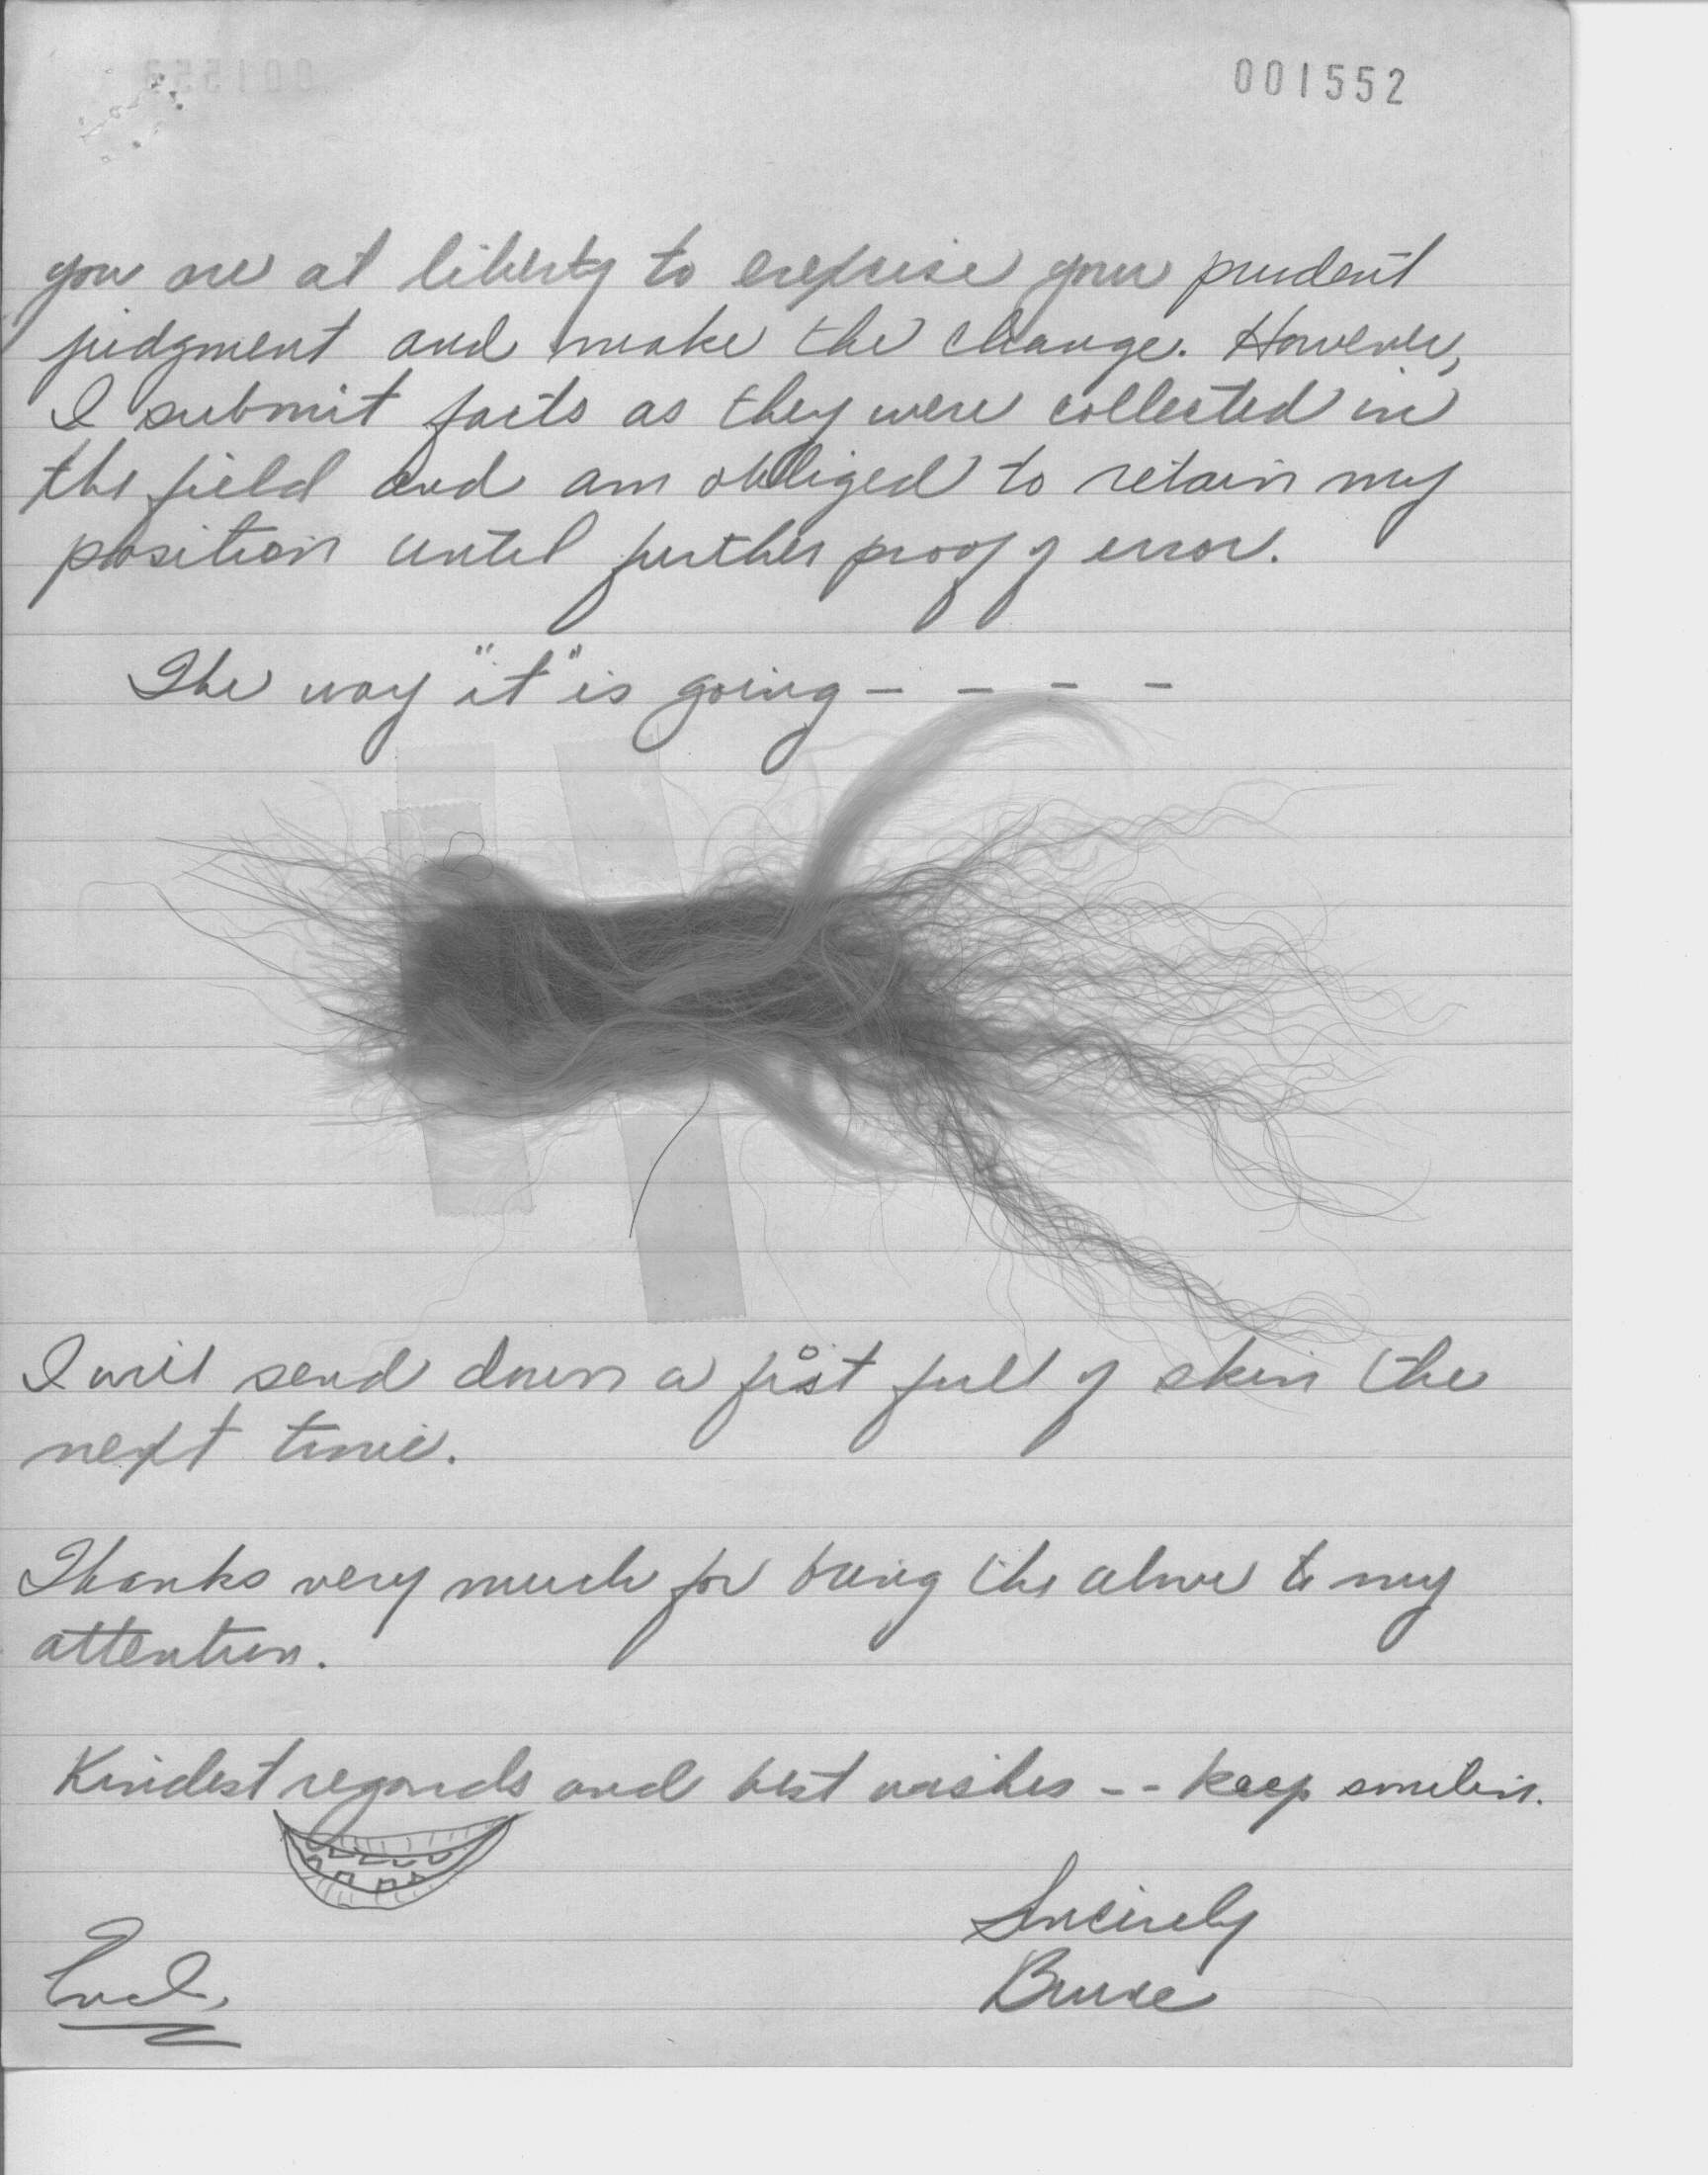 001552
you are at liberty to exercise your prudent
judgment and make the change. However,
I submit facts as they were collected in
the field and am obliged to retain my
position until further proof of error.
The way "it" is going - - - -
I will send down a fist full of skin the
next time.
Thanks very much for bring the above to my
attention.
Kindest regards and best wishes -- keep smilin.
Sincerely
Bruce
Encl.